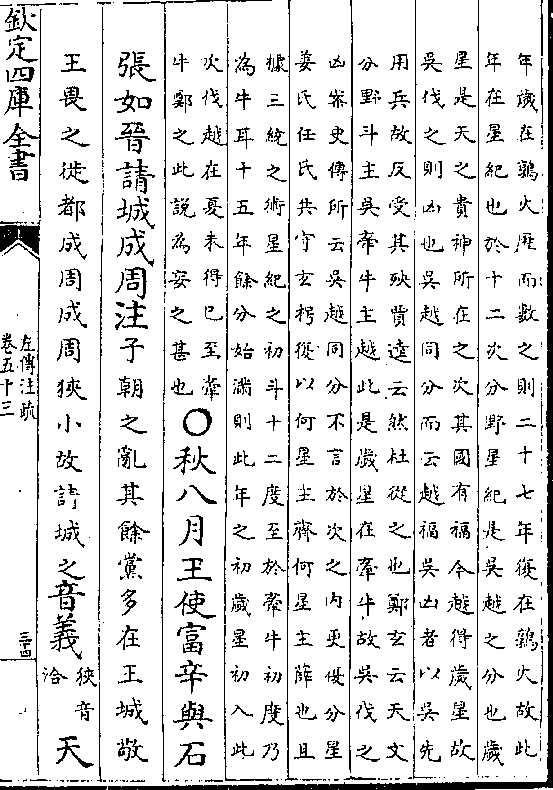 年歲在鶉火歴而數之則二十七年復在鶉火故此
年在星紀也於十二次分野星紀是吳越之分也歲
星是天之貴神所在之次其國有福今越得歲星故
吳伐之則凶也吳越同分而云越福吳凶者以吳先
用兵故反受其殃賈逵云然杜從之也鄭玄云天文
分野斗主吳牽牛主越此是歲星在牽牛故吳伐之
凶案史傳所云吳越同分不言於次之内更復分星
姜氏任氏共守玄枵復以何星主齊何星主薛也且
據三統之術星紀之初斗十二度至於牽牛初度乃
為牛耳十五年餘分始滿則此年之初歲星初入此
次伐越在夏未得已至牽
牛鄭之此說為妄之甚也
〇秋八月王使富辛與石
張如晉請城成周注子朝之亂其餘黨多在王城敬
王畏之徙都成周成周狹小故請城之音義狹音
洽
天
欽定四庫全書
左傳注疏
卷五十三
三十四